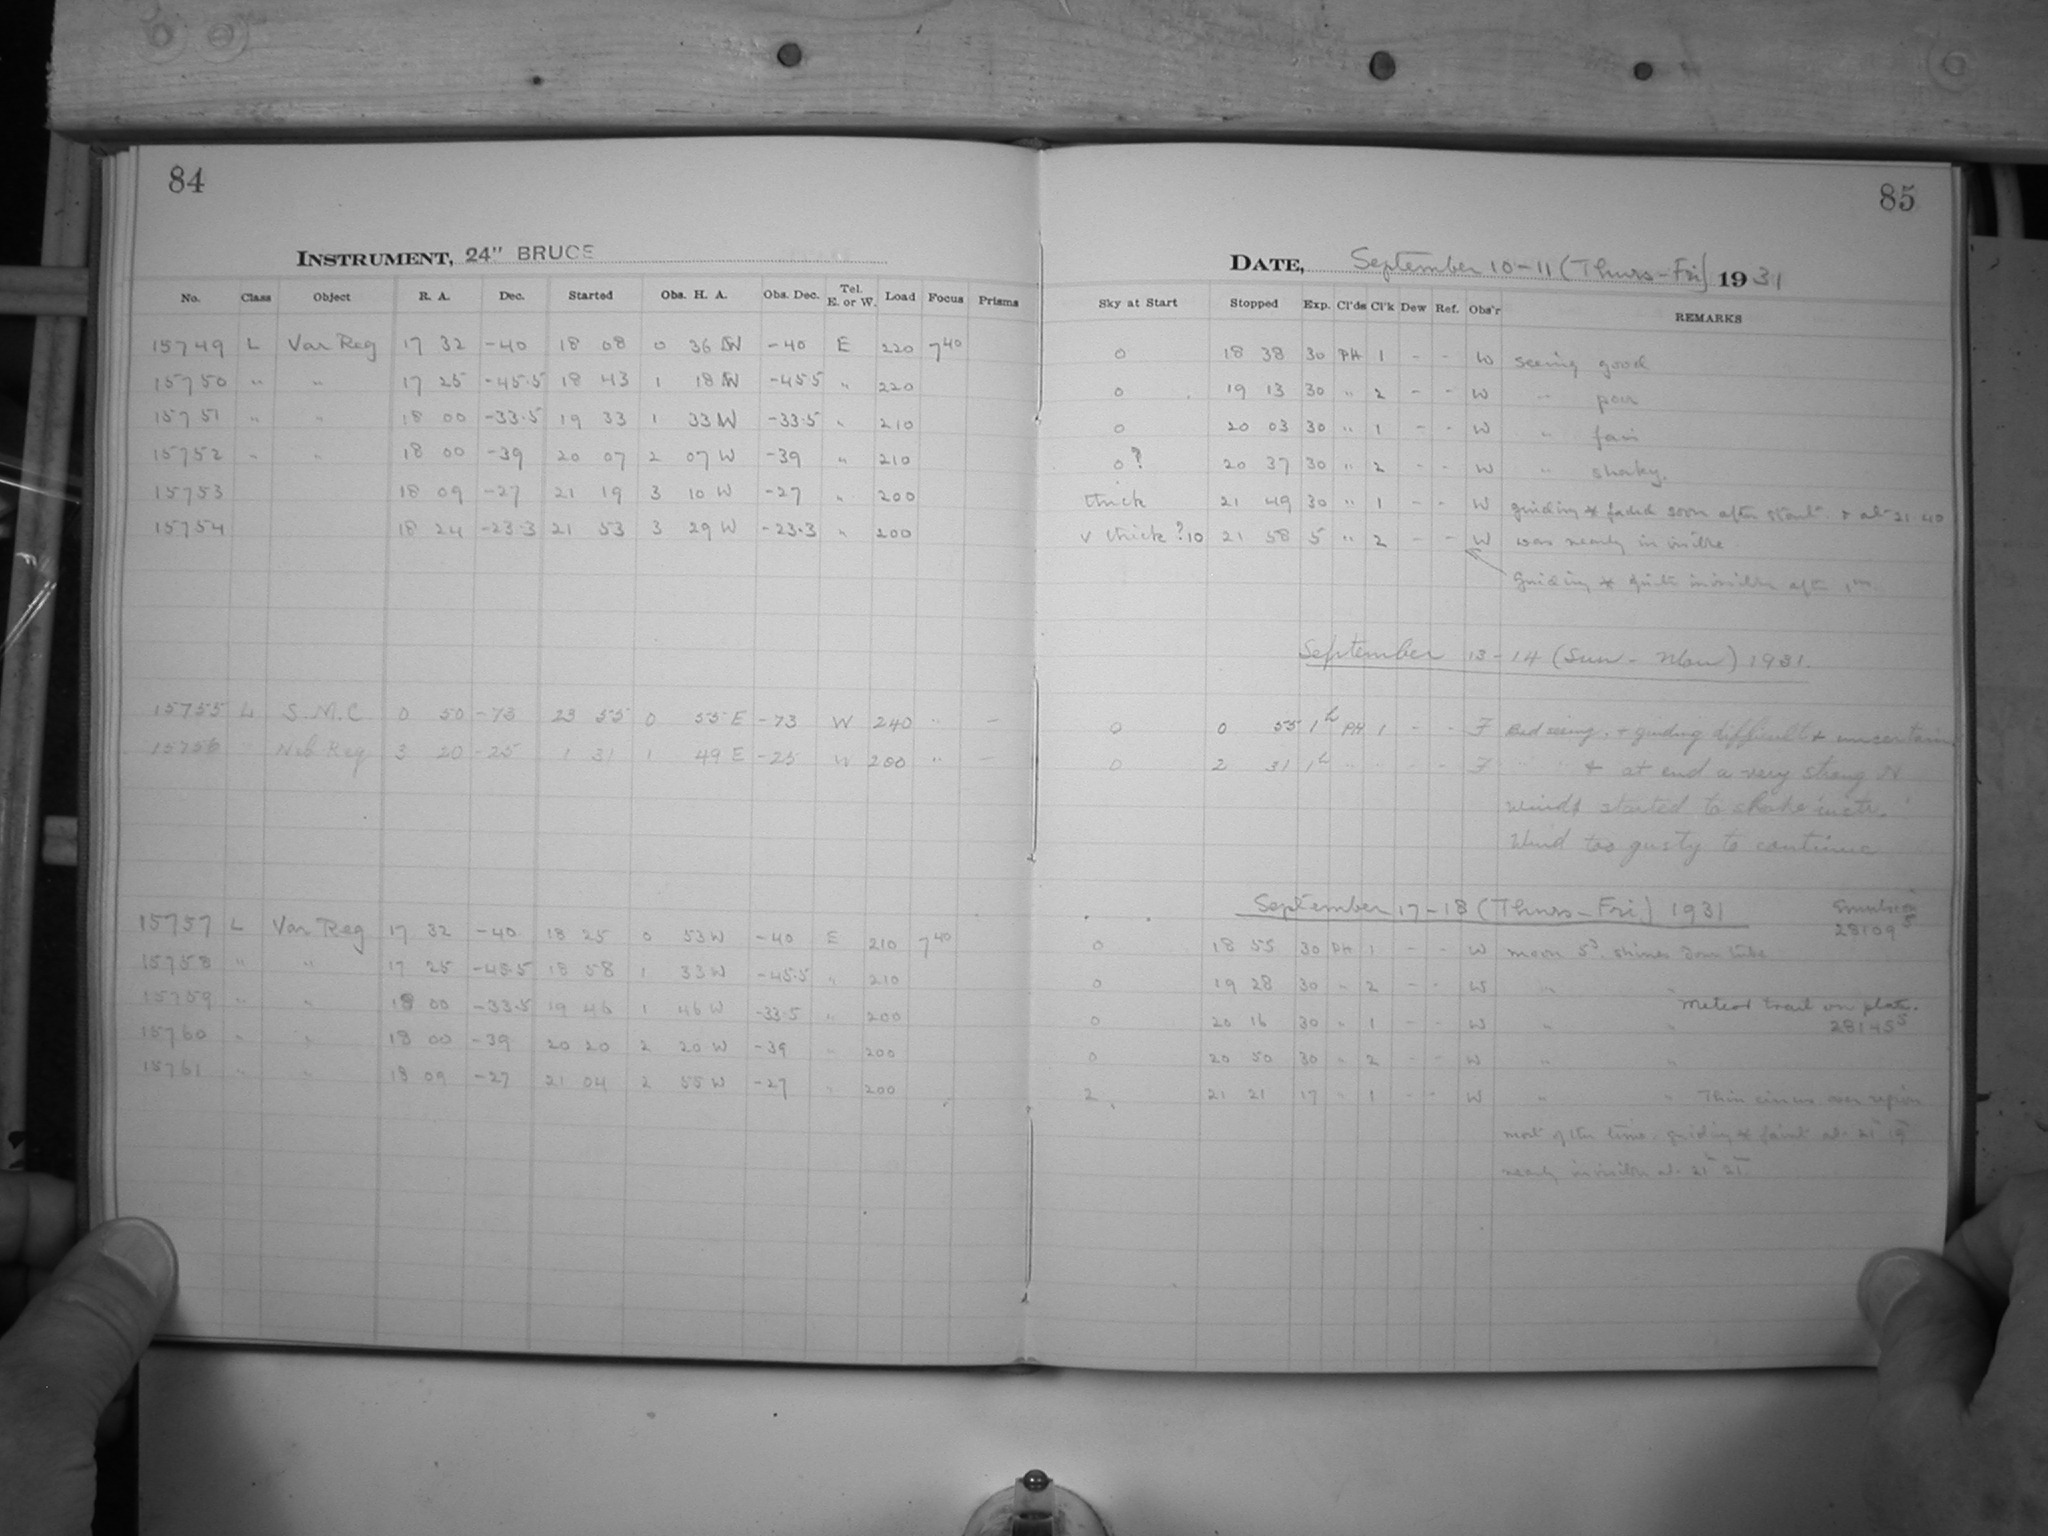 84
INSTRUMENT, 24" BRUCE
No. Class Object R. A. Dec. Started Obs. H. A. Obs. Dec. Tel. E. or W. Load Focus Prisms
15749 L Var Reg 17 32 -40 18 08 0 36 W -40 E 220 7 40
15750 " " 17 25 -45.5 18 43 1 18 W -45.5 " 220
15751 " " 18 00 -33.5 19 33 1 33 W -33.5 " 210
15752 " " 18 00 -39 20 07 2 07 W -39 " 210
15753 18 09 -27 21 19 3 10 W -27 " 200
15754 18 24 -23.3 21 53 3 29 W -23.3 " 200
15755 L S.M.C 0 50 -73 23 55 0 55 E -73 W 240 " -
15756 Neb Reg 3 20 -25 1 31 1 49 E -25 W 200 " -
15757 L Var Reg 17 32 -40 18 25 0 53 W -40 E 210 7 40
15758 " " 17 25 -45.5 18 58 1 33 W -45.5 " 210
15759 " " 18 00 -33.5 19 46 1 46 W -33.5 " 200
15760 " " 18 00 -39 20 20 2 20 W -39 " 200
15761 " " 18 09 -27 21 04 2 55 W -27 " 200
85
DATE, September 10-11 (Thurs-Fri) 1931
Sky at Start Stopped Exp. Cl'ds Cl'k Dew Ref. Obs'r REMARKS
0 18 38 30 PH 1 - - W seeing good
0 19 13 30 " 2 - - W " poor
0 20 03 30 " 1 - - W " fair
0? 20 37 30 " 2 - - W " shaky.
thick 21 49 30 " 1 - - W guiding * faded soon after start. & at 21.40
v thick ? 10 21 58 5 " 2 - - W was nearly invisible
Guiding * quite invisible after 1m
September 13-14 (Sun - Mon) 1931.
0 0 55 1h PH 1 - - F Bad seeing. & guiding difficult & uncertain
0 2 31 1h " " - - F " " & at end a very strong N
wind started to shake inst.
Wind too gusty to continue
September 17-18 (Thurs-Fri) 1931
Emulsion
28109 5
0 18 55 30 PH 1 - - W moon 5d. shines down tube
0 19 28 30 " 2 - - W " "
Meteor trail on plate.
0 20 16 30 " 1 - - W " " 28145 5
0 20 50 30 " 2 - - W " "
2 21 21 17 " 1 - - W " " Thin cirrus over region
most of the time. guiding * faint at 21h 19m
nearly invisible at 21h 21m.